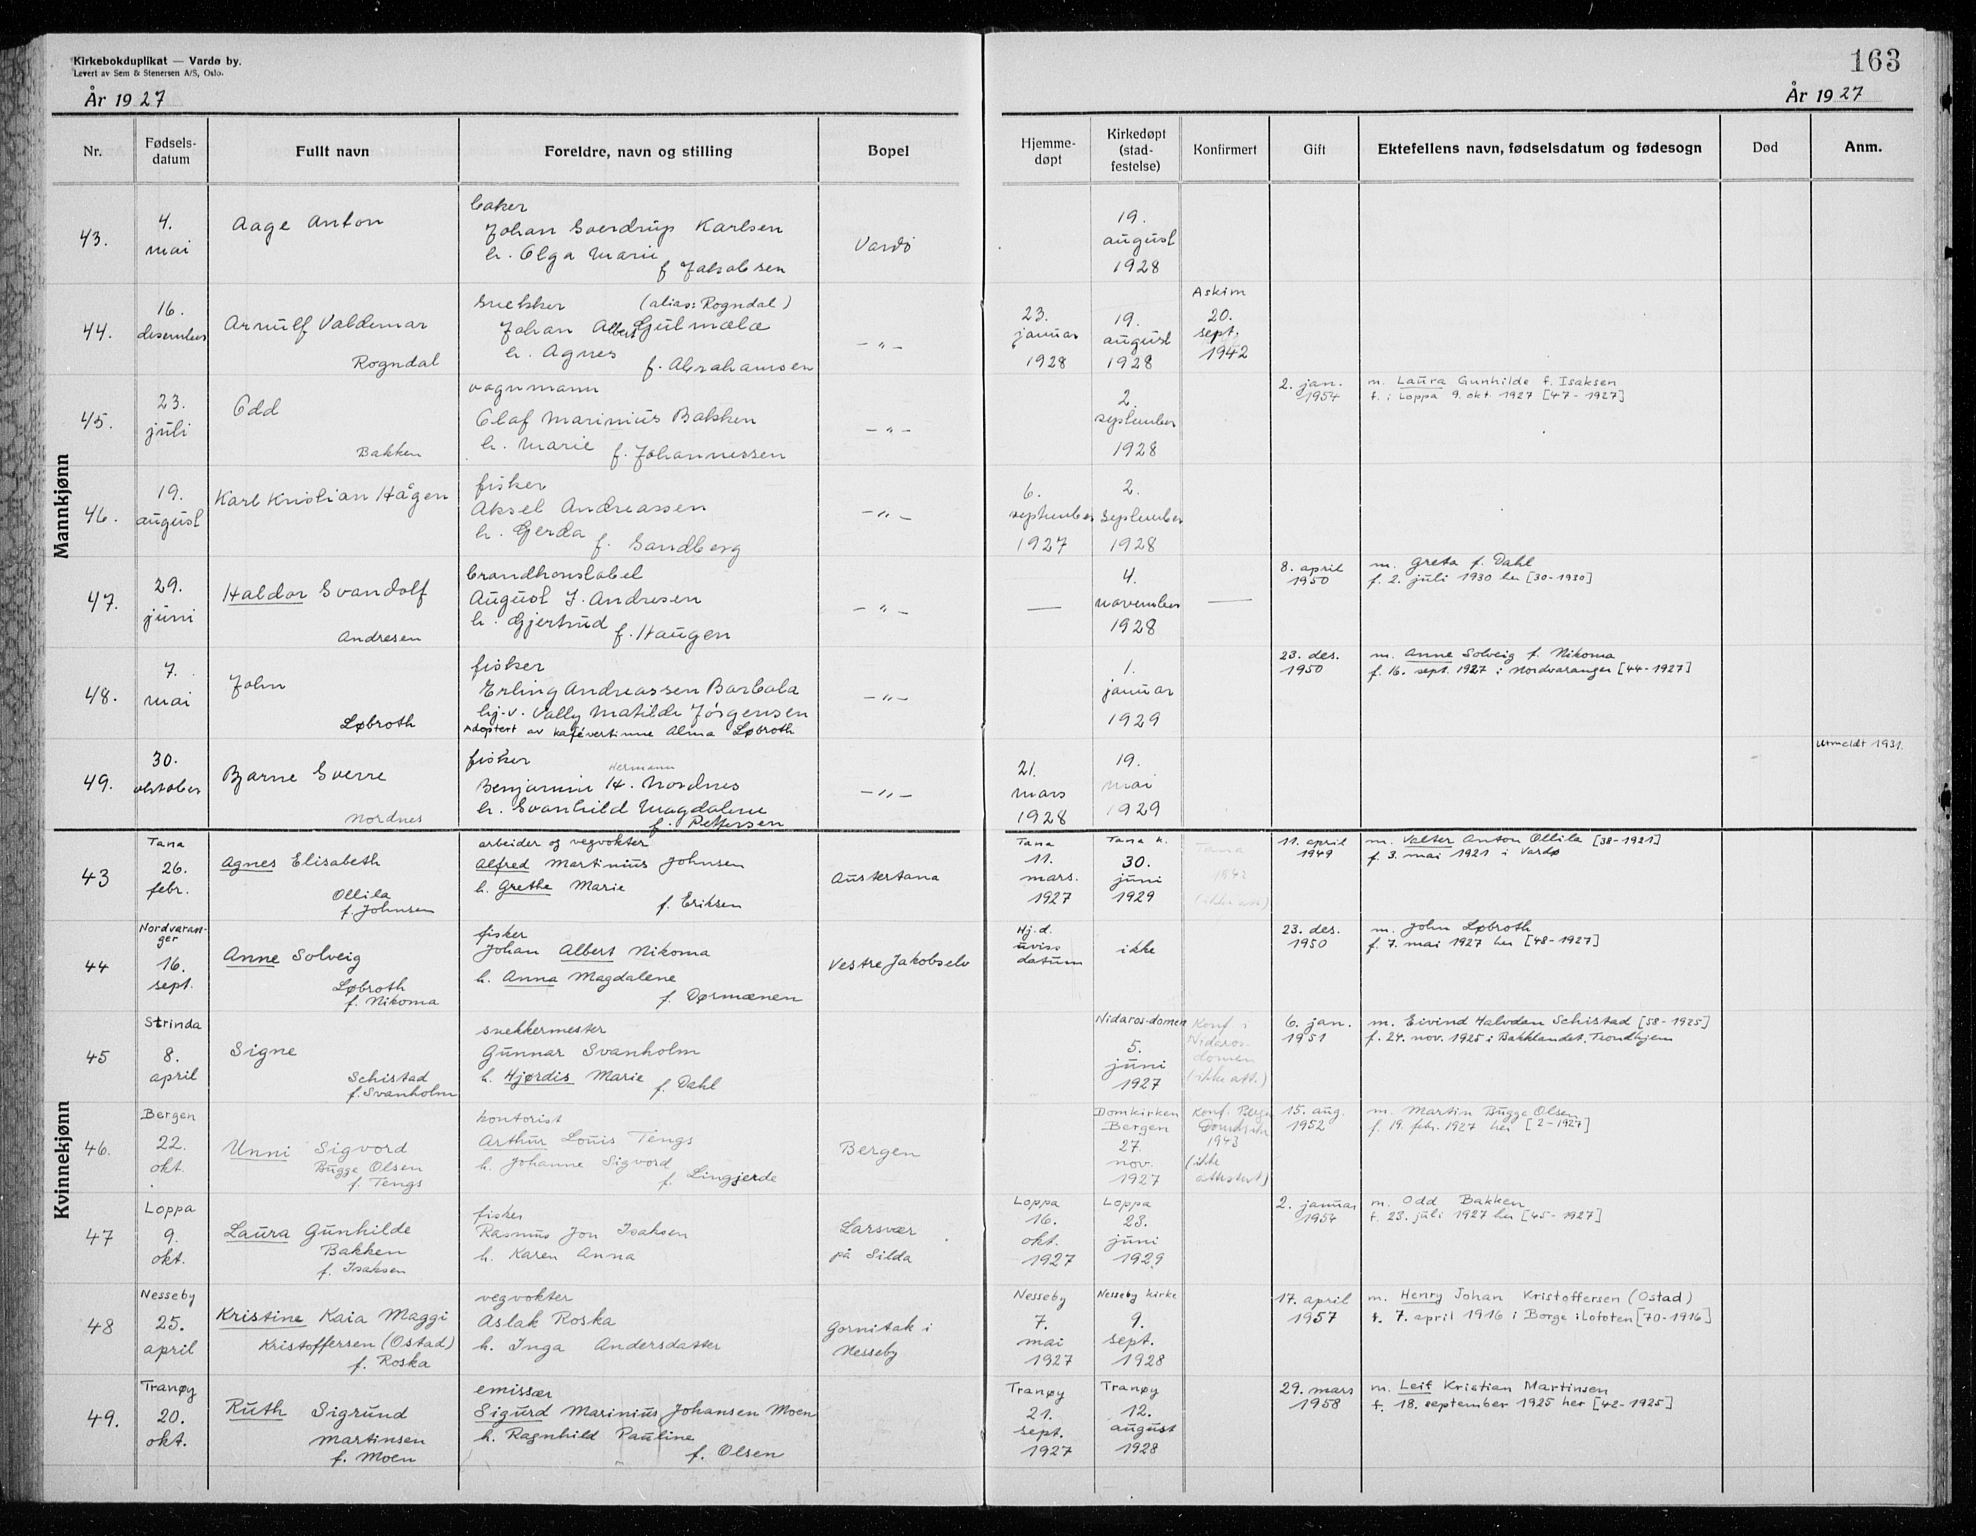 Kirkebokduplikat — Vardø by.
Levert av Sem & Stenersen A/S, Oslo.
163
År 1927
År 1927
Nr. Fødselsdatum Fullt navn Foreldre, navn og stilling Bopel Hjemmedøpt Kirkedøpt (stadfestelse) Konfirmert Gift Ektefellens navn, fødselsdatum og fødesogn Død Anm.
Mannkjønn
43.
4.
mai
Aage Anton
baker
Johan Sverdrup Karlsen
h. Olga Marie
f Jakobsen
Vardö
19.
august
1928
44.
16.
desember
Arnulf Valdemar
Rogndal
snekker (alias: Rogndal)
Johan Albert Gjulmælæ
h. Agnes
f. Abrahamsen
— " —
23.
januar
1928
19.
august
1928
Askim
20.
sept.
1942
45.
23.
juli
Odd
Bakken
vognmann
Olaf Marinius Bakken
h. Marie
f. Johannessen
— " —
2.
september
1928
2. jan.
1954
m. Laura Gunhilde f. Isaksen
f. i Loppa 9. okt. 1927 [47-1927]
46.
19.
august
Karl Kristian Hågen
fisker
Aksel Andreassen
h. Gerda
f. Sandberg
— " —
6.
september
1927
2.
september
1928
47.
29.
juni
Haldor Svandolf
Andresen
brandkonstabel
August J. Andresen
h. Gjertrud
f. Haugen
— " —
—
4.
november
1928
—
8. april
1950
m. Greta f. Dahl
f. 2. juli 1930 her [30-1930]
48.
7.
mai
John
Løbroth
fisker
Erling Andreassen Barbala
hj.v. Vally Matilde Jörgensen
Adoptert av kafévertinne Alma Løbroth
— " —
1.
januar
1929
23. des.
1950
m. Anne Solveig f. Nikoma
f. 16. sept. 1927 i Nordvaranger [44-1927]
49.
30.
oktober
Bjarne Sverre
Nordnes
fisker
Hermann
Benjamin H. Nordnes
h. Svanhild Magdalene
f. Pettersen
— " —
21.
mars
1928
19.
mai
1929
Utmeldt 1931.
Kvinnekjønn
43
Tana
26.
febr.
Agnes Elisabeth
Ollila
f. Johnsen
arbeider og vegvokter
Alfred Martinius Johnsen
h. Grethe Marie
f. Eriksen
Austertana
Tana
11.
mars.
1927
Tana k.
30.
juni
1929
Tana
1942
(ikke att.)
11. april
1949
m. Valter Anton Ollila [38-1921]
f. 3. mai 1921 i Vardø
44
Nordvaranger
16.
sept.
Anne Solveig
Løbroth
f. Nikoma
fisker
Johan Albert Nikoma
h. Anna Magdalene
f. Dørmænen
Vestre Jakobselv
Hj.d.
uviss
datum
ikke
23. des.
1950
m. John Løbroth
f. 7. mai 1927 her [48-1927]
45
Strinda
8.
april
Signe
Schistad
f. Svanholm
snekkermester
Gunnar Svanholm
h. Hjørdis Marie
f. Dahl
Nidaros-domen
5.
juni
1927
Konf. i
Nidaros-
domen
(ikke att.)
6. jan.
1951
m. Eivind Halvdan Schistad [58-1925]
f. 24. nov. 1925 i Bakklandet, Trondhjem
46.
Bergen
22.
okt.
Unni Sigvord
Bugge Olsen
f. Tengs
kontorist
Arthur Louis Tengs
h. Johanne Sigvord
f. Lingjerde
Bergen
Domkirken
Bergen
27.
nov.
1927
Konf. Bergen
Domkirken
1943
(ikke
attestert)
15. aug.
1952
m. Martin Bugge Olsen
f. 19. febr. 1927 her [2-1927]
47
Loppa
9.
okt.
Laura Gunhilde
Bakken
f. Isaksen
fisker
Rasmus Jon Isaksen
h. Karen Anna
Larsvær
på Silda
Loppa
16.
okt.
1927
Loppa
23.
juni
1929
2. januar
1954
m. Odd Bakken
f. 23. juli 1927 her [45-1927]
48
Nesseby
25.
april
Kristine Kaia Maggi
Kristoffersen (Ostad)
f. Roska
vegvokter
Aslak Roska
h. Inga Andersdatter
Gornitak i
Nesseby
Nesseby
7.
mai
1927
Nesseby kirke
9.
sept.
1928
17. april
1957
m. Henry Johan Kristoffersen (Ostad)
f. 7. april 1916 i Borge i Lofoten [70-1916]
49.
Tranøy
20.
okt.
Ruth Sigrund
Martinsen
f. Moen
emissær
Sigurd Marinius Johansen Moen
h. Ragnhild Pauline
f. Olsen
Tranøy
21.
sept.
1927
Tranøy
12.
august
1928
29. mars
1958
m. Leif Kristian Martinsen
f. 18. september 1925 her [42-1925]